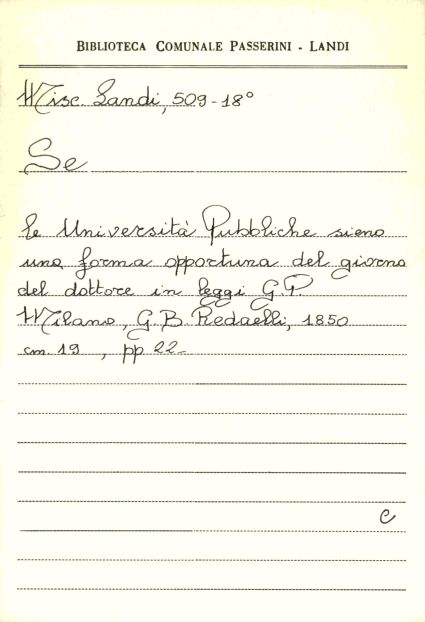 BIBLIOTECA COMUNALE PASSERINI - LANDI
Misc. Landi, 509-18°
Se
le Università Pubbliche sieno
una forma opportuna del giorno
del dottore in leggi G.P.
Milano, G.B. Redaelli, 1850
cm. 19 , pp 22-
C